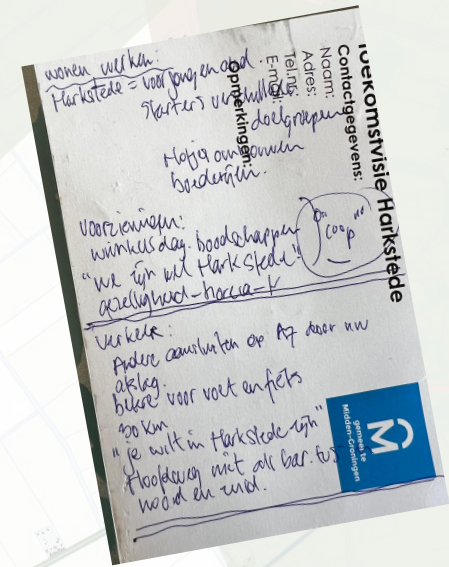 Toekomstvisie Harkstede
Contactgegevens:
Naam:
Adres:
Tel.nr:
E-mail:
Opmerkingen:
wonen, werken:
Harkstede = voor jong en oud.
starters verschillende
doelgroepen
Hofjes ombouwen
boerderijen.
voorzieningen:
winkels dag. boodschappen
"coop"
"we zijn wel Harkstede"
gezelligheid - horeca -
verkeer:
Andere aansluiten op A7 door nw
afslag.
beter voor voet en fiets
30 km
"je wilt in Harkstede zijn"
Hoofdweg niet als bar. tus
noord en zuid.
gemeente
Midden-Groningen